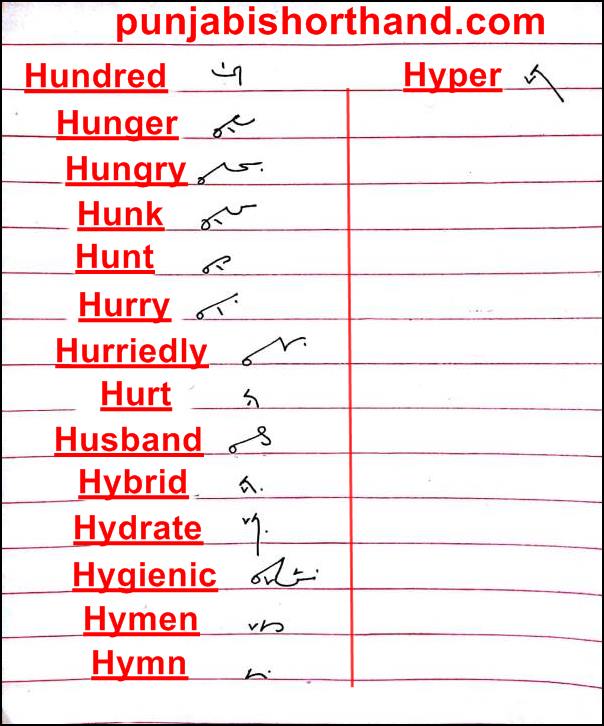 punjabishorthand.com
Hundred
Hunger
Hungry
Hunk
Hunt
Hurry
Hurriedly
Hurt
Husband
Hybrid
Hydrate
Hygienic
Hymen
Hymn
Hyper